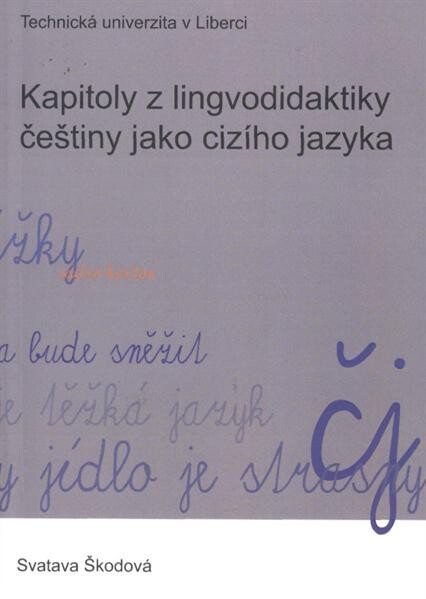 Technická univerzita v Liberci
Kapitoly z lingvodidaktiky
češtiny jako cizího jazyka
ížky
a bude sněžit
je těžká jazyk
y jídlo je strašný
čj
Svatava Škodová